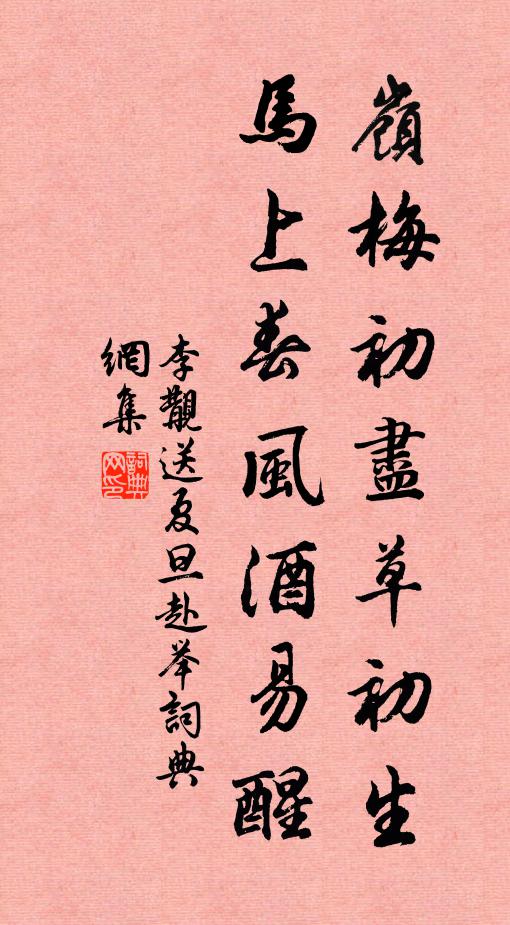 嶺梅初盡草初生
馬上春風酒易醒
李觀送夏旦赴举詞典
網集
詞典
网印